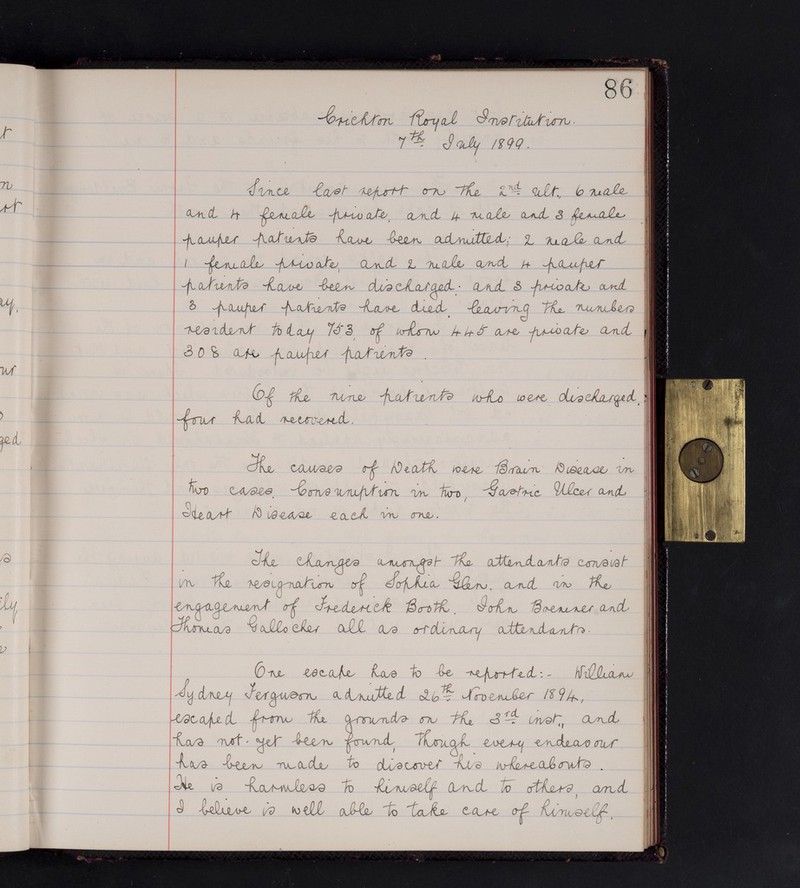 86
Crichton Royal Institution.
7th July 1899.
Since last report on the 2nd ult. 6 male
and 4 female private, and 4 male and 3 female
pauper patients have been admitted; 2 male and
1 female private, and 2 male and 4 pauper
patients have been discharged; and 3 private and
3 pauper patients have died, leaving the numbers
resident today 753, of whom 445 are private and
308 are pauper patients.
Of the nine patients who were discharged,
four had recovered.
The causes of Death were Brain Disease in
two cases, Consumption in two, Gastric Ulcer and
Heart Disease each in one.
The changes amongst the attendants consist
in the resignation of Sophia Glen, and in the
engagement of Frederick Booth, John Bremner and
Thomas Gallocher all as ordinary attendants.
One escape has to be reported:- William
Sydney Ferguson admitted 26th November 1894,
escaped from the grounds on the 3rd inst., and
has not yet been found, though every endeavour
has been made to discover his whereabouts.
He is harmless to himself and to others, and
I believe is well able to take care of himself.